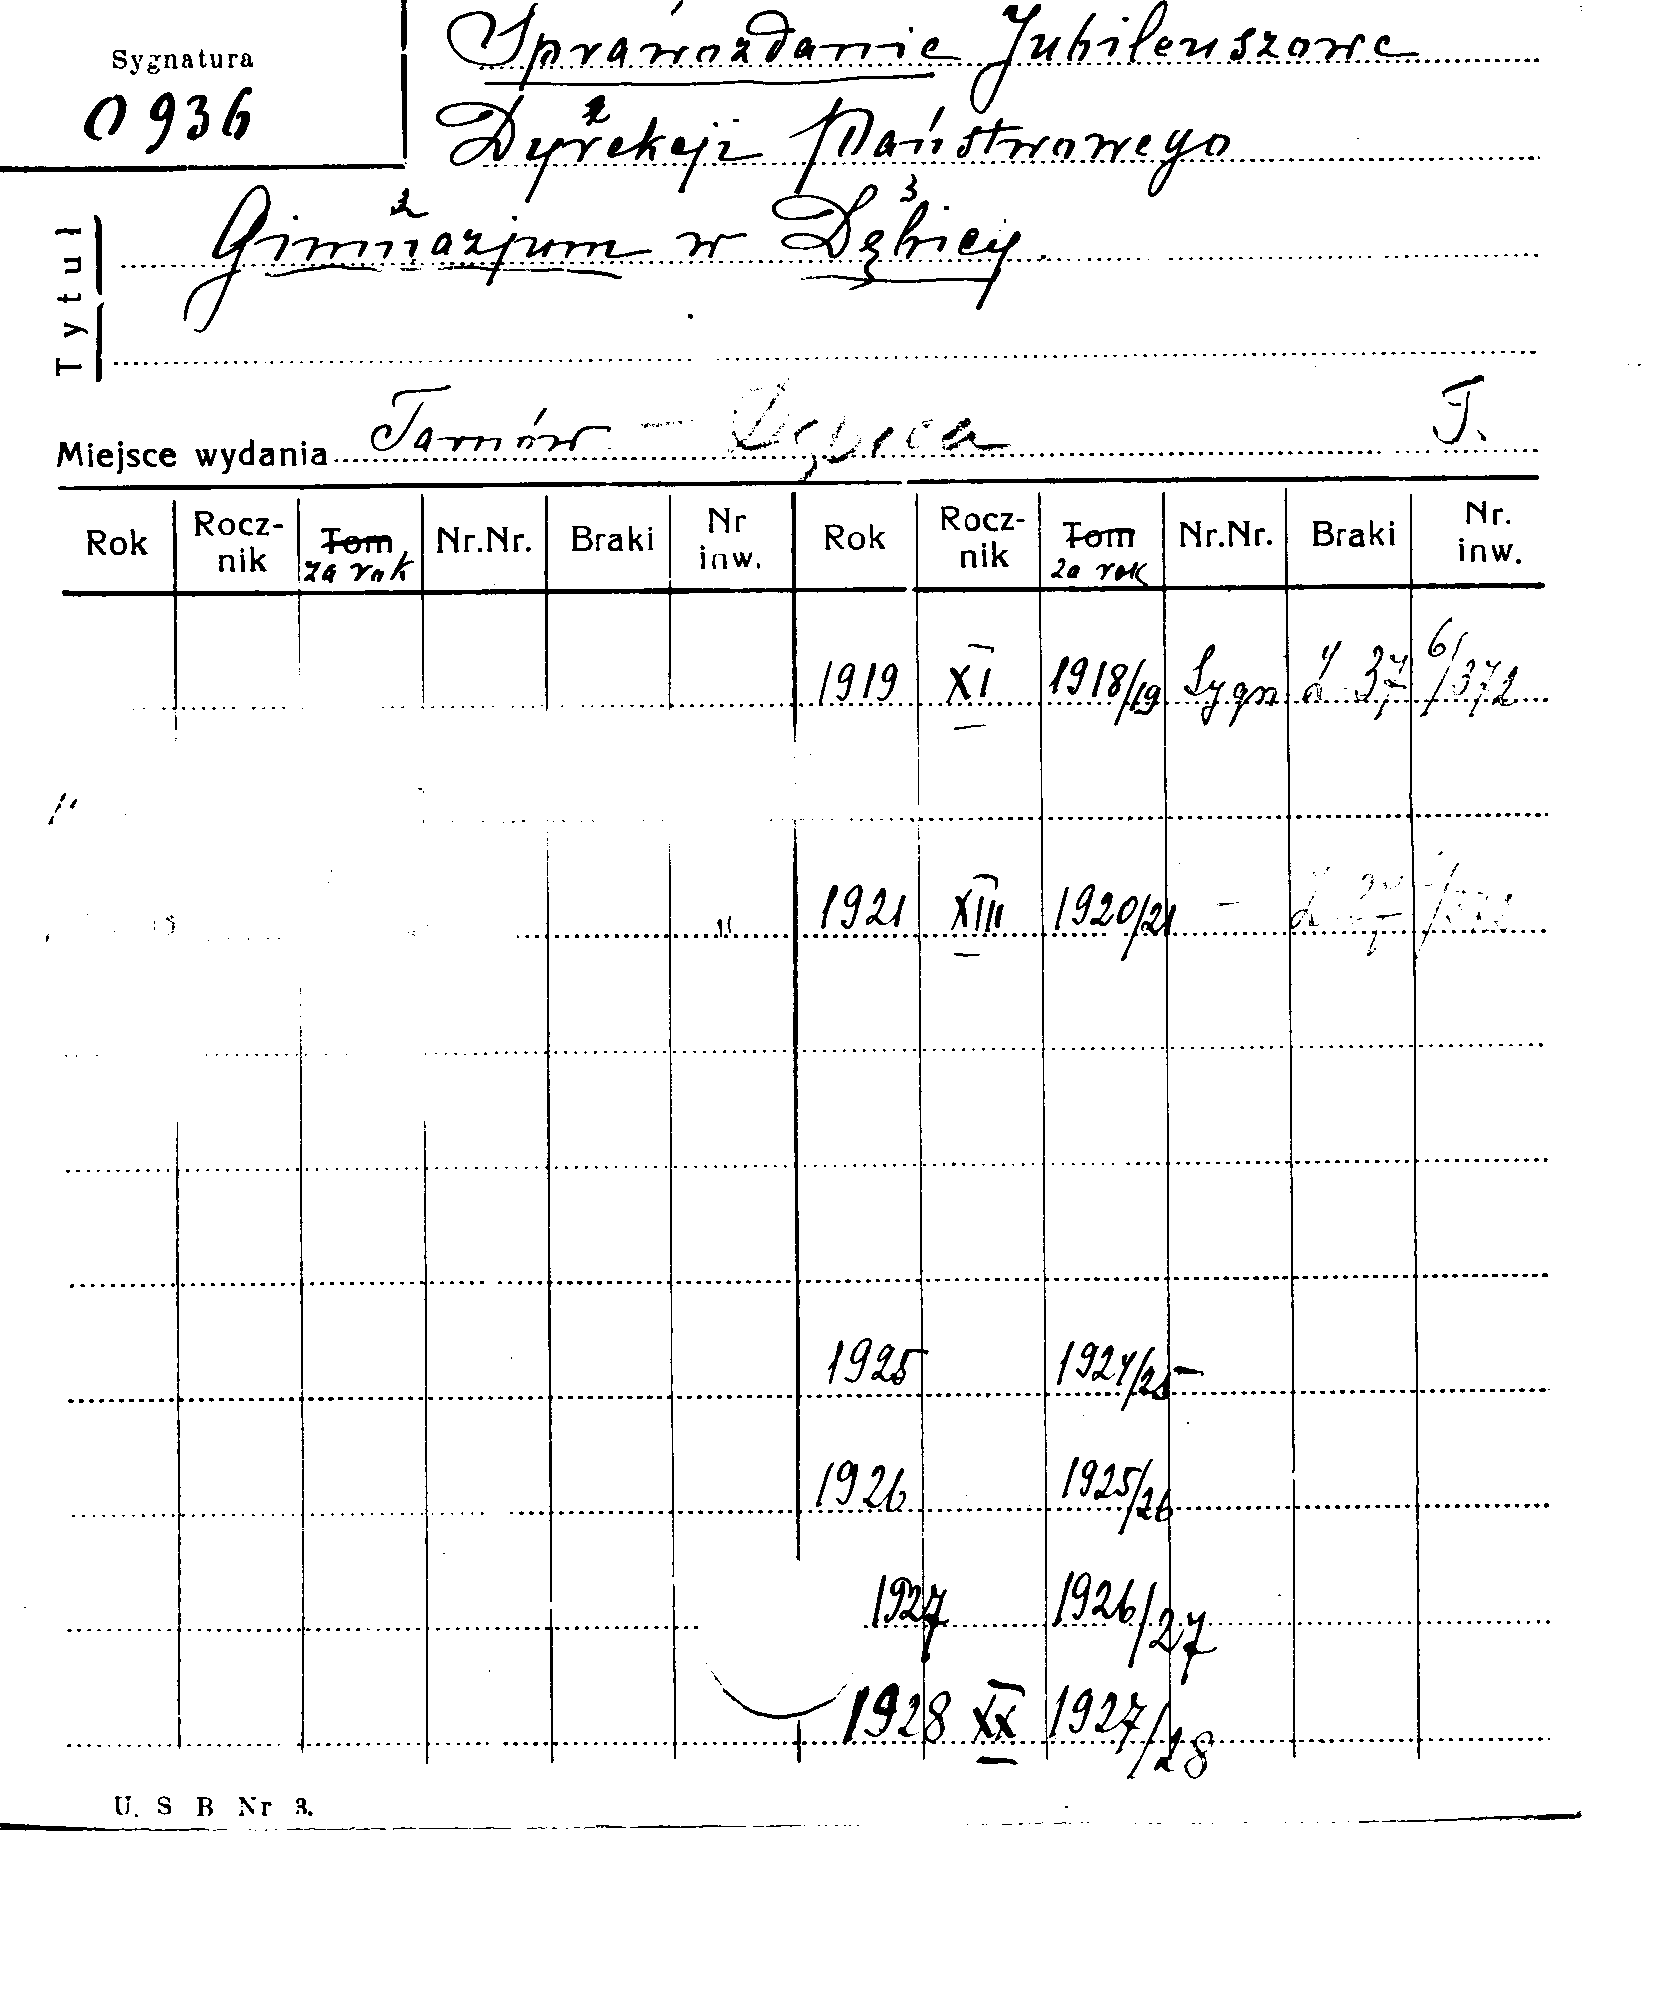 Sygnatura
0936
Sprawozdanie Jubileuszowe
Dyrekcji Państwowego
Gimnazjum w Dębicy.
Tytuł
Miejsce wydania Tarnów – Dębica T.
Rok Rocz-nik Tom za rok Nr.Nr. Braki Nr inw. Rok Rocz-nik Tom za rok Nr.Nr. Braki Nr. inw.
1919 XI 1918/19 Sygn 6/372
1921 XIII 1920/21 –
1925 1924/25 –
1926 1925/26
1927 1926/27
1928 XX 1927/28
U. S B Nr 3.